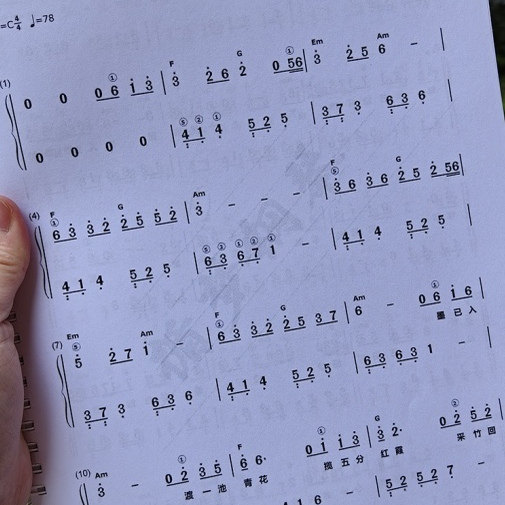 =C 4/4 ♩=78
F G Em Am
① ①
(1) 0 0 0 6 1 3 3 2 6 2 0 5 6 3 2 5 6 –
⑤ ② ①
0 0 0 0 4 1 4 5 2 5 3 7 3 6 3 6
F G Am F G
① ① ⑤
(4) 6 3 3 2 2 5 5 2 3 – – – 3 6 3 6 2 5 2 5 6
⑤ ③ ① ① ② ①
4 1 4 5 2 5 6 3 6 7 1 – 4 1 4 5 2 5
Em Am F G Am
⑤ ① ①
(7) 5 2 7 1 – 6 3 3 2 2 5 3 7 6 – 0 6 1 6
墨 已 入
3 7 3 6 3 6 4 1 4 5 2 5 6 3 6 3 1 –
Am F G
② ① ②
(10) 3 – 0 2 3 5 6 6· 0 1 1 3 3 2· 0 2 5 2
渡 一 池 青 花 揽 五 分 红 霞 采 竹 回
1 6 – 5 2 5 2 7 –